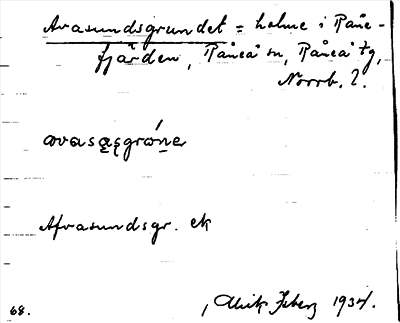 Avasundsgrundet = holme i Råne-
fjärden, Råneå sn, Råneå tg,
Norrb. l.
avasąsgrωne̱r
Afvasundsgr. ek
1934.
68.